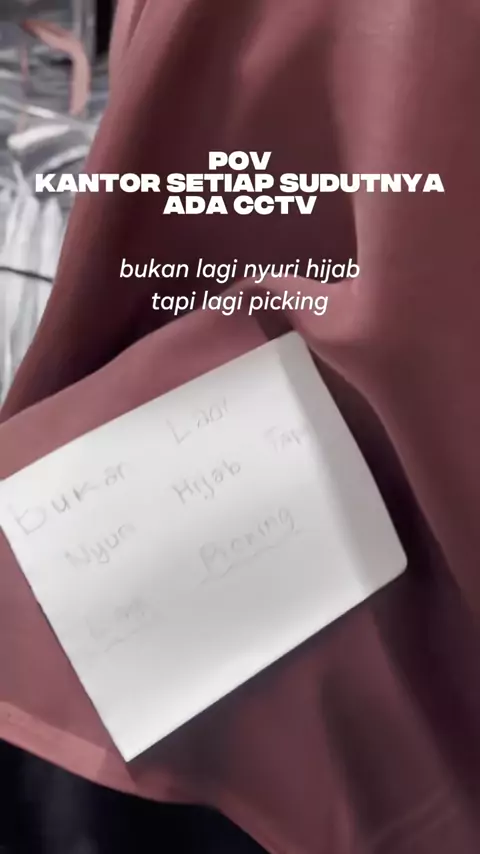 POV
KANTOR SETIAP SUDUTNYA
ADA CCTV
bukan lagi nyuri hijab
tapi lagi picking
bukan Lagi
Nyuri Hijab Tapi
Lagi Picking